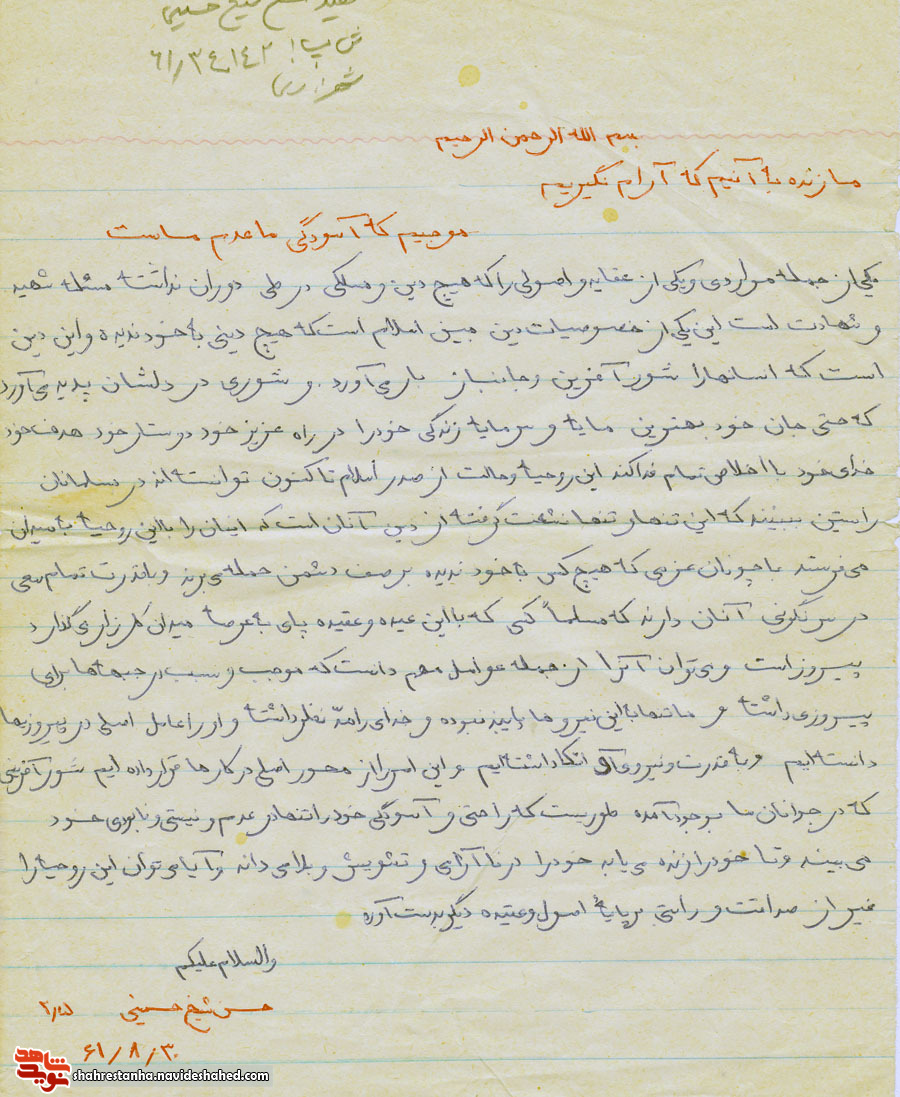 شیخ حسینی
ش پ: ۶۱/۳۴۱۴۲
شهر: ری
بسم الله الرحمن الرحیم
ما زنده به آنیم که آرام نگیریم
موجیم که آسودگی ما عدم ماست
یکی از جمله مواردی و یکی از عقاید و اصولی را که هیچ دین و مسلکی در طی دوران نداشته مسئله شهید
و شهادت است این یکی از خصوصیات دین مبین اسلام است که هیچ دینی به خود ندیده و این دین
است که انسانها را شور آفرین و جانباز بار می‌آورد. و شوری در دلشان پدید می‌آورد
که حتی جان خود بهترین مایه و سرمایه زندگی خود را در راه عزیز خود دوستار خود هدف خود
خدای خود با اخلاص تمام فدا کند این روحیه و حالت از صدر اسلام تا کنون توانسته‌اند در مسلمانان
راستین ببینند که این تنها و تنها نشعت گرفته از دین آنان است که انسان را با این روحیه به میدان
می‌فرستد با چونان عزمی که هیچ کس به خود ندیده بر صف دشمن حمله می‌برند و با قدرت تمام سعی
در سرنگونی آنان دارند که مسلماً کسی که با این عیده و عقیده پای به عرصه میدان کارزار می‌گذارد
پیروز است و می‌توان آنرا از جمله عوامل مهم دانست که موجب و سبب در جبهه‌ها برای
پیروزی داشته و ما تنها به این نیروها پایبند نبوده و خدای را مدّ نظر داشته و او را عامل اصلی در پیروزیها
دانسته‌ایم و به قدرت و نیروی او اتکا داشته‌ایم و این امر را از محور اصلی در کارها قرار داده ایم شور آفرینی
که در جوانان ما بوجود آمده طوریست که راحتی و آسودگی خود را تنها در عدم و نیستی و نابودی خود
می‌بیند و تنها خود را زنده می‌یابد خود را در نا آرامی و تشویش و بلا می داند و آیا می‌توان این روحیه را
غیر از صداقت و راستی بر پایهٔ اصول و عقیده دیگر بدست آورد
والسلام علیکم
حسن شیخ حسینی
۶۱/۸/۳۰
شاهد
نوید
shahrestanha.navideshahed.com